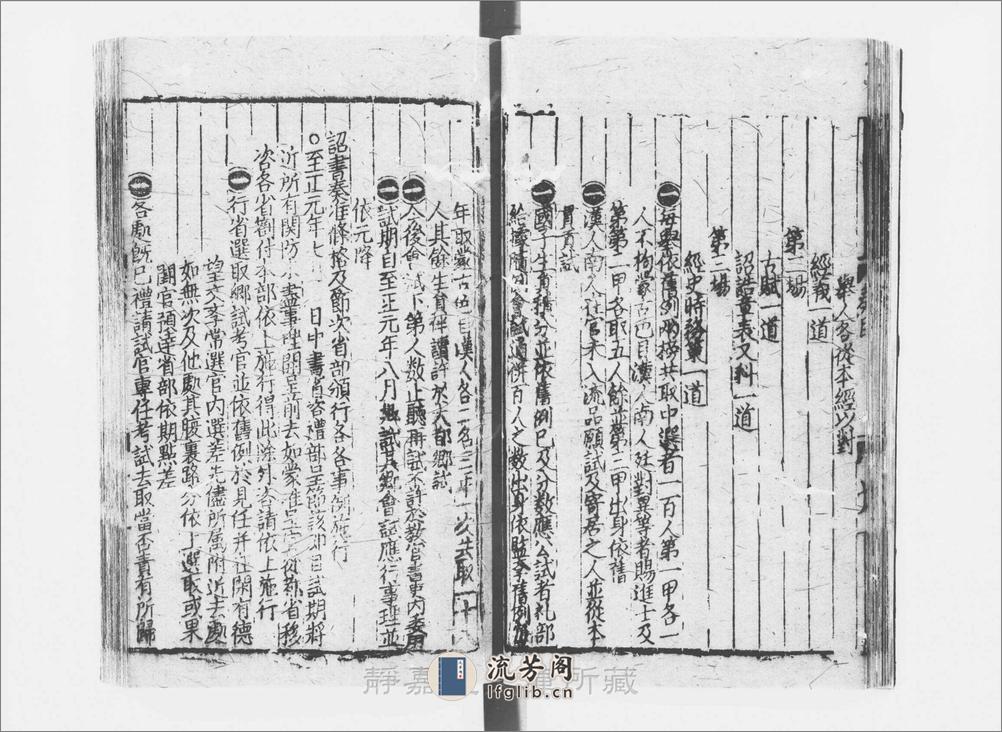 舉人各從本經以對
經義一道
第二場
古賦一道
詔誥章表又科一道
第三場
經史時務策一道
㊀每舉依舊例兩榜共取中選者一百人第一甲各一
人不拘蒙古色目漢人南人廷對異等者賜進士及
第第二甲各取五人餘並第三甲出身依舊
㊀漢人南人任官未入流品願試及寄居之人並從本
貫貢試
㊀國子生員積分並依舊例已及分數應公試者禮部
給據隨同會試通併百人之數出身依監學舊例
年取蒙古色目漢人各二名三年一次共取一十八
人其餘生員伴讀許於大都鄉試
㊀今後會試下第人數止聽再試不許於教官書吏內委用
㊀試期自至正元年八月鄉試其鄉會試應行事理並
依元降
詔書奏准條格及節次省部頒行各各事例施行
○至正元年七月 日中書省咨禮部呈節該即目試期將
近所有關防 盡事理開呈前去如蒙准呈 從都省移
咨各省劄付本部依上施行得此除外咨請依上施行
㊀行省選取鄉試考官並依舊例於見任并在閑有德
望文學常選官內選差先儘所屬附近去處
如無次及他處其腹裏路分依上選取或果
閑官預達省部依期點差
㊀各處既已禮請試官專任考試去取當否責有所歸
靜嘉 所藏
流芳阁
lfglib.cn